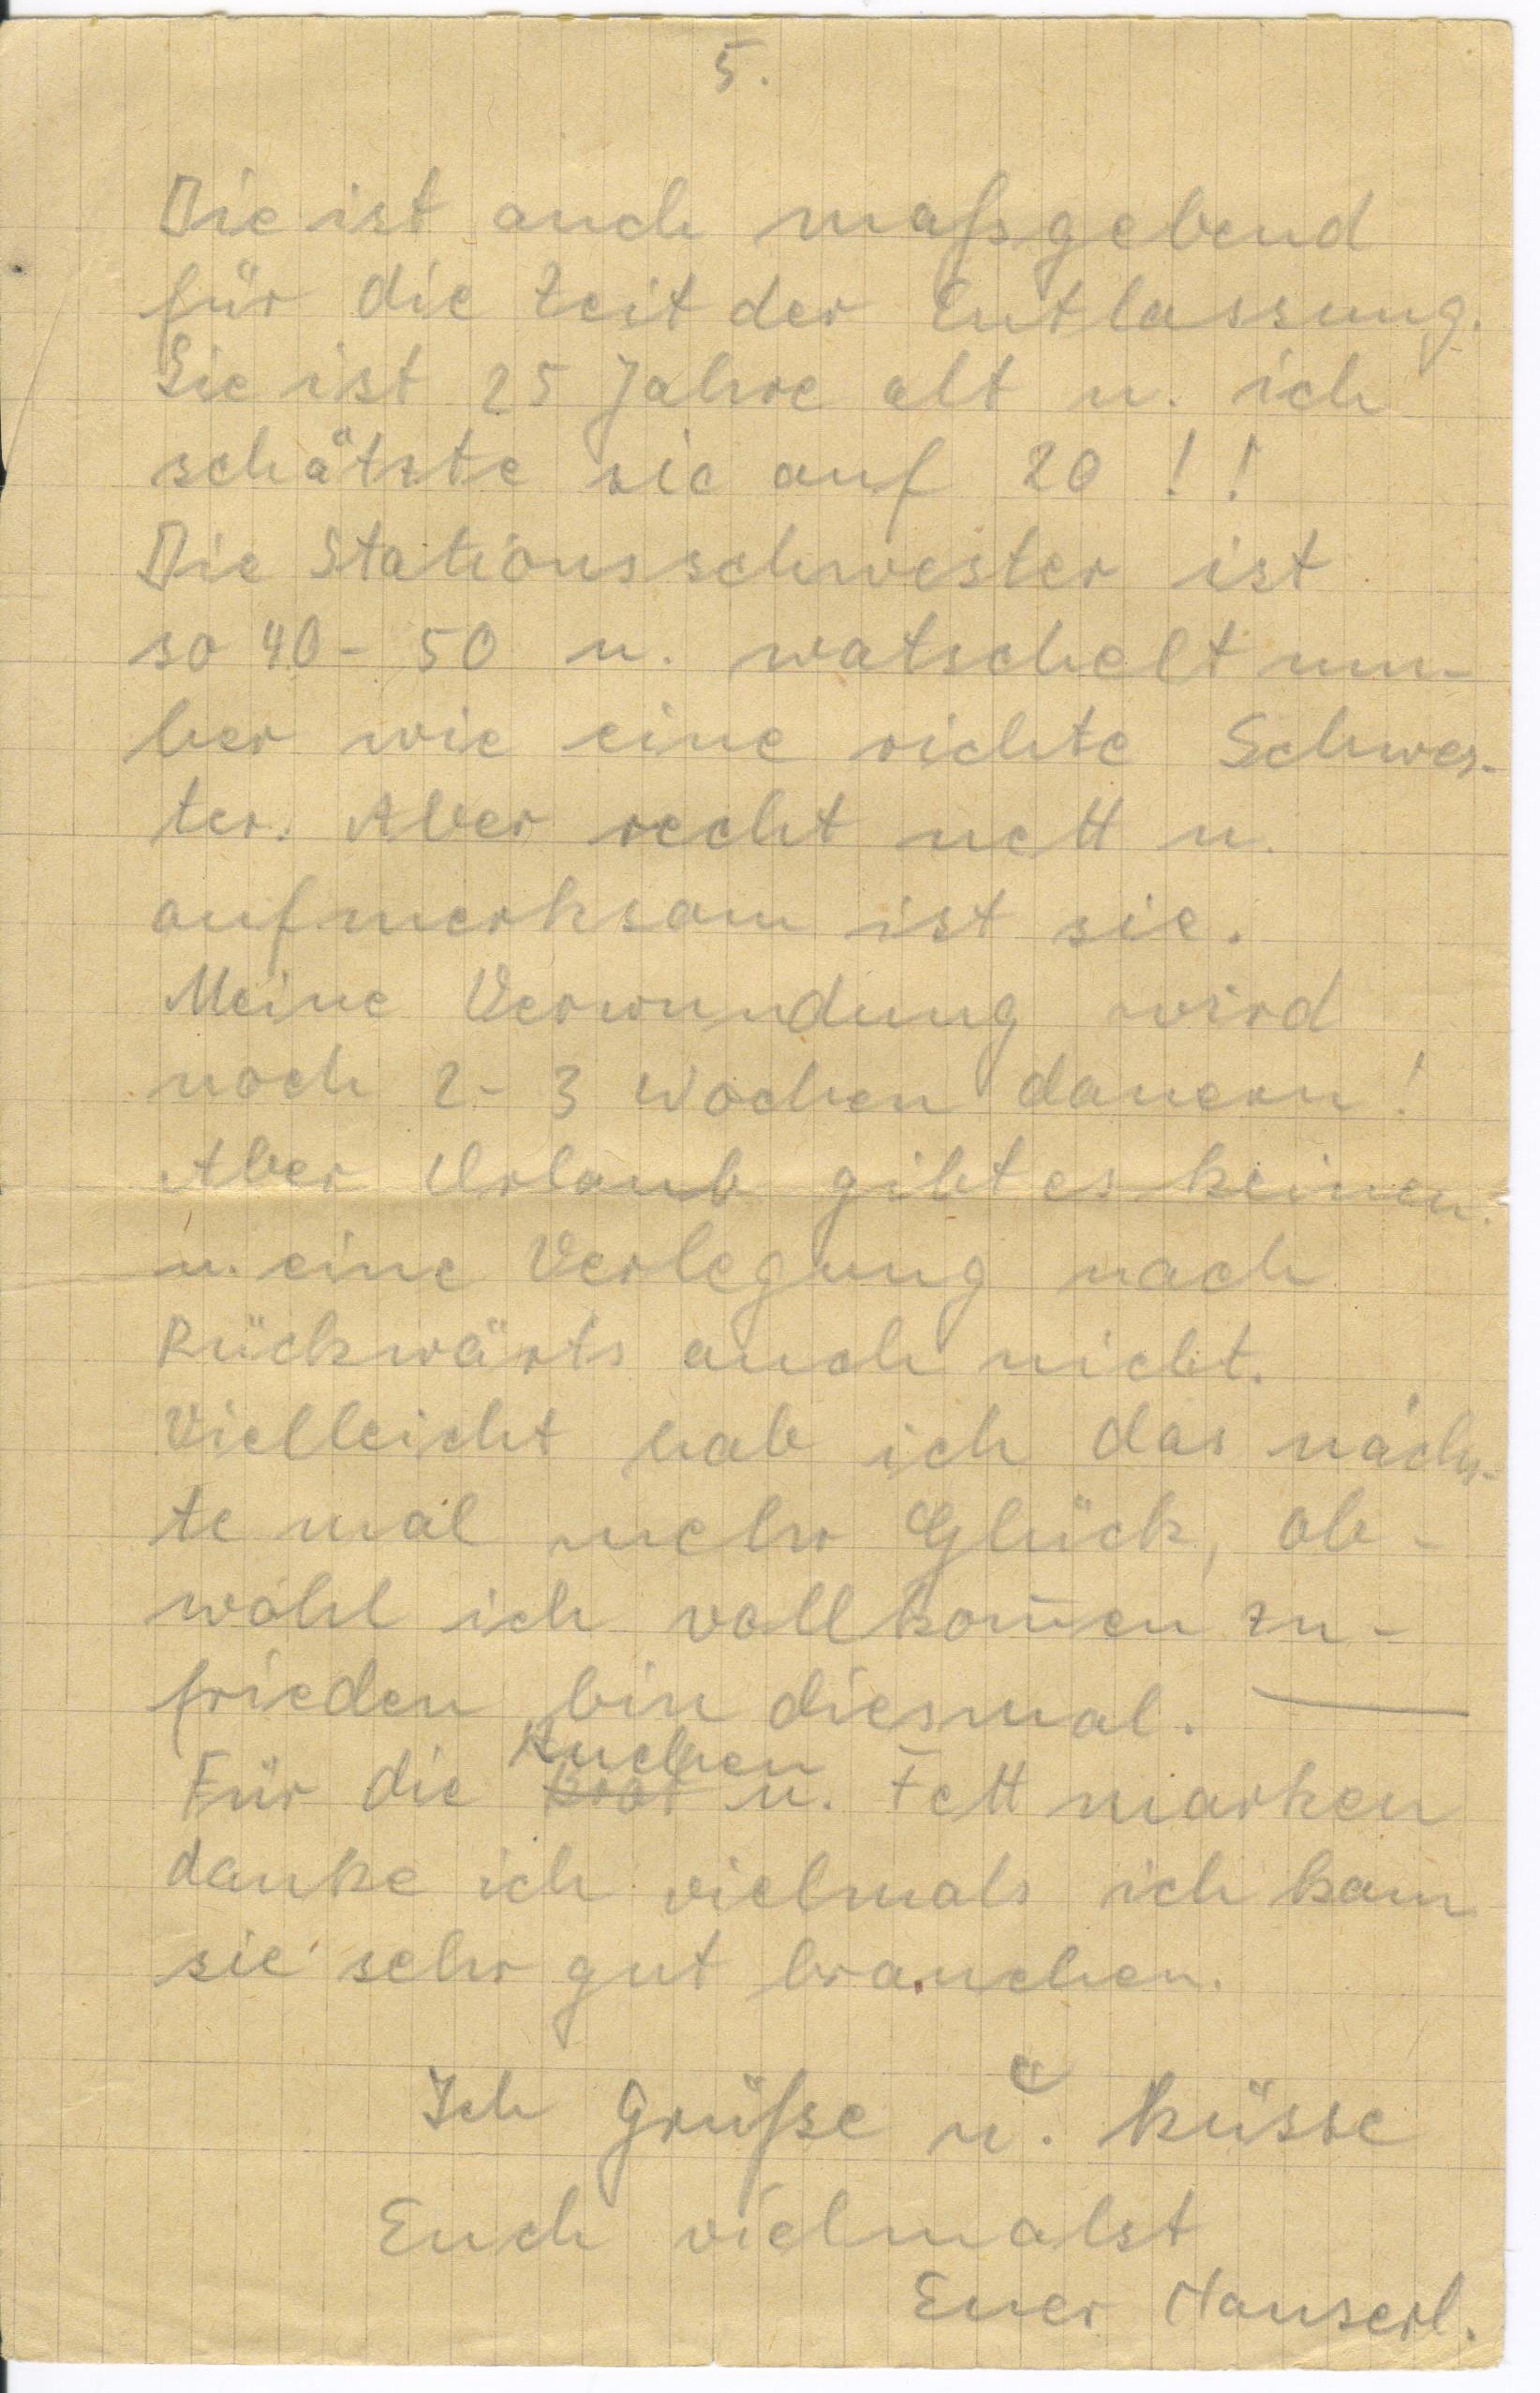 5.
Die ist auch maßgebend
für die Zeit der Entlassung.
Sie ist 25 Jahre alt u. ich
schätzte sie auf 20 !!
Die Stationsschwester ist
so 40 - 50 u. watschelt um-
her wie eine richte Schwes-
ter. Aber recht nett u.
aufmerksam ist sie.
Meine Verwundung wird
noch 2 - 3 Wochen dauern!
Aber Urlaub gibt es keinen.
u. eine Verlegung nach
Rückwärts auch nicht.
Vielleicht hab ich das nächs-
te mal mehr Glück, ob-
wohl ich vollkom̄en zu-
frieden bin diesmal. —
Kuchen
Für die Brot u. Fett marken
danke ich vielmals ich kann
sie sehr gut brauchen.
Ich Grüße u. küsse
Euch vielmalst
Euer Hanserl.